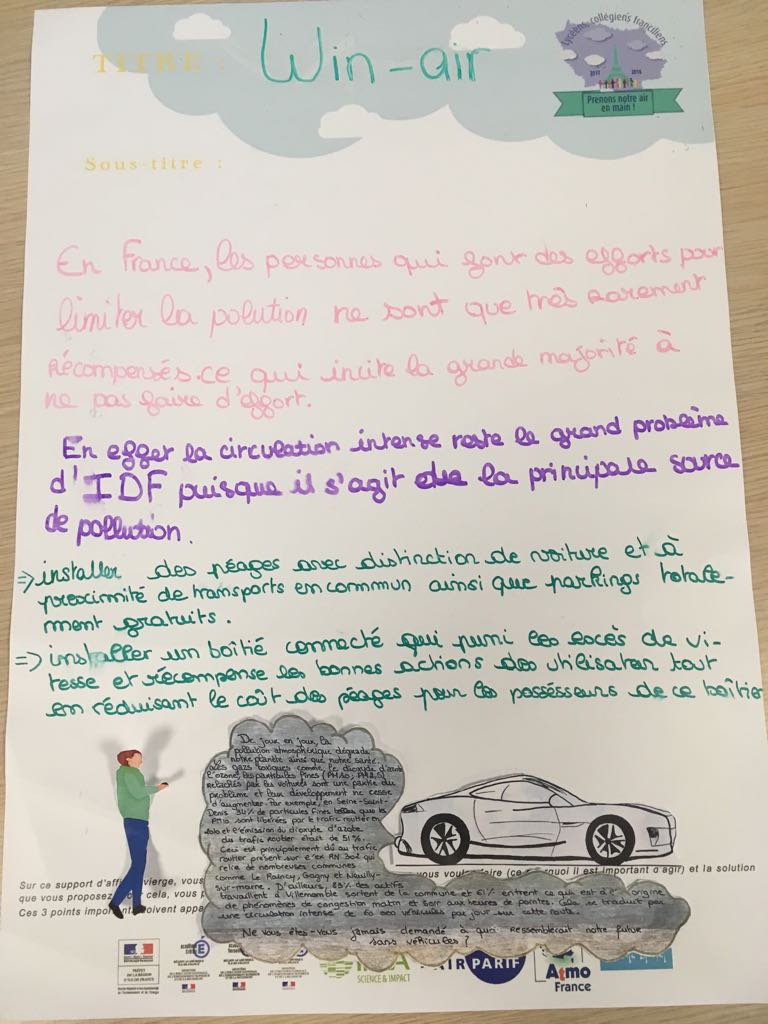 TITRE : Win-air
Lycéens, collégiens franciliens
2017 2018
Prenons notre air
en main !
Sous-titre :
En France, les personnes qui font des efforts pour
limiter la polution ne sont que très rarement
Récompensés. ce qui incite la grande majorité à
ne pas faire d'effort.
En effet la circulation intense reste le grand problème
d'IDF puisque il s'agit de la principale source
de pollution.
⇒ installer des péages avec distinction de voiture et à
proximité de transports en commun ainsi que parkings totale-
ment gratuits.
⇒ installer un boîtié connecté qui puni les excès de vi-
tesse et récompense les bonnes actions des utilisateu tout
en réduisant le coût des péages pour les possésseurs de ce boîtier
De jour en jour, la
pollution atmosphérique dégrade
notre planète ainsi que notre santé.
Des gazs toxiques comme, le dioxyde d'azote
l'ozone, les particules fines (PM10; PM2,5)
relachés par les voitures sont une partie du
problème et leur développement ne cesse
d'augmenter. Par exemple, en Seine-Saint-
Denis 34% de particules fines telles que les
PM10 sont libérées par le trafic routier en
et l'émission du dioxyde d'azote
du trafic routier était de 51%.
Ceci est principalement dû au trafic
routier présent sur l'ex RN 302 qui
relie de nombreuses communes
comme Le Raincy, Gagny et Neuilly-
sur-marne. D'ailleurs, 85% des actifs
travaillent à Villemomble sortent de la commune et 61% entrent ce qui est à l'origine
de phénomènes de congestion matin et soir aux heures de pointes. Cela se traduit par
une circulation intense de 60 000 véhicules par jour sur cette route.
Ne vous êtes-vous jamais demandé à quoi ressemblerait notre future
sans véhicules ?
Sur ce support d'aff vierge, vous vous voul faire (ce quoi il est important d'agir) et la solution
que vous propose cela, vous p
Ces 3 points import doivent appa
PRÉFET
DE LA RÉGION
D'ÎLE-DE-FRANCE
SCIENCE & IMPACT
AIRPARIF
Atmo
France